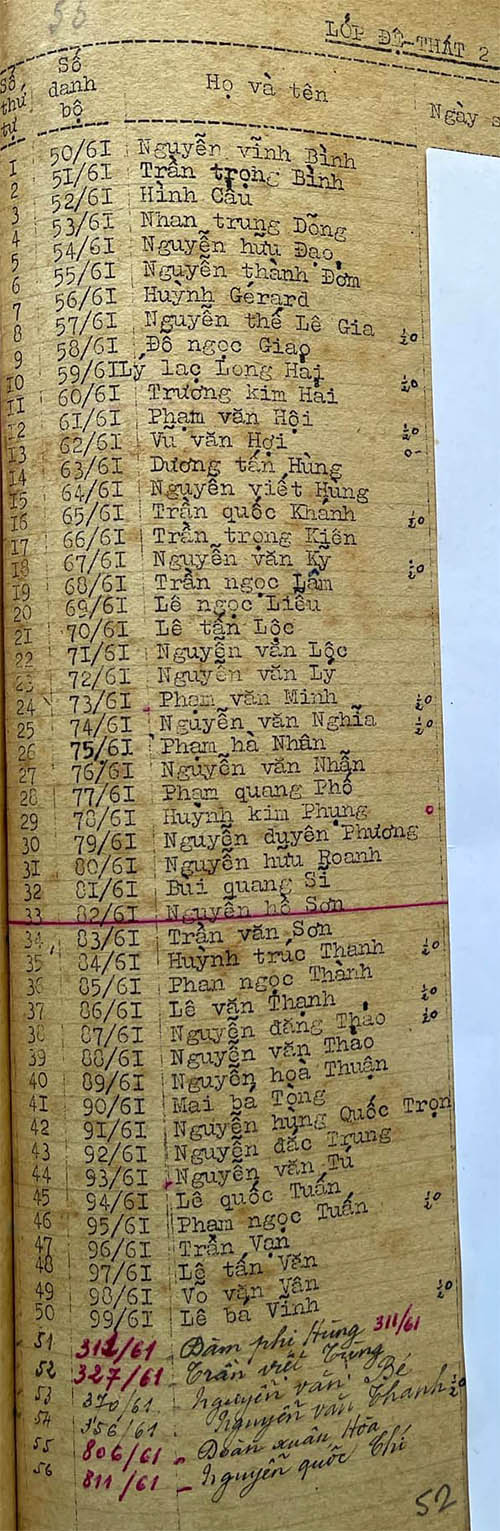 55
LỚP ĐỆ-THẤT 2
Số thứ tự Số danh bộ Họ và tên Ngày s
1 50/61 Nguyễn vĩnh Bình
2 51/61 Trần trọng Bình
3 52/61 Hình Cẩu
4 53/61 Nhan trung Dõng
5 54/61 Nguyễn hữu Đạo
6 55/61 Nguyễn thành Đơm
7 56/61 Huỳnh Gérard
8 57/61 Nguyễn thế Lê Gia ½0
9 58/61 Đỗ ngọc Giao
10 59/61 Lý lạc Long Hải ½0
11 60/61 Trương kim Hải
12 61/61 Phạm văn Hội ½0
13 62/61 Vũ văn Hợi 0-
14 63/61 Dương tấn Hùng
15 64/61 Nguyễn viết Hùng
16 65/61 Trần quốc Khánh ½0
17 66/61 Trần trọng Kiên
18 67/61 Nguyễn văn Kỹ ½0
19 68/61 Trần ngọc Lâm
20 69/61 Lê ngọc Liễu
21 70/61 Lê tấn Lộc
22 71/61 Nguyễn văn Lộc
23 72/61 Nguyễn văn Lý
24 73/61 Phạm văn Minh ½0
25 74/61 Nguyễn văn Nghĩa ½0
26 75/61 Phạm hà Nhân
27 76/61 Nguyễn văn Nhẫn
28 77/61 Phạm quang Phố
29 78/61 Huỳnh kim Phụng
30 79/61 Nguyễn duyên Phương
31 80/61 Nguyễn hữu Roanh
32 81/61 Bùi quang Sĩ
33 82/61 Nguyễn hồ Sơn
34 83/61 Trần văn Sơn
35 84/61 Huỳnh trúc Thanh ½0
36 85/61 Phan ngọc Thành
37 86/61 Lê văn Thạnh ½0
38 87/61 Nguyễn đăng Thảo ½0
39 88/61 Nguyễn văn Thảo
40 89/61 Nguyễn hoà Thuận
41 90/61 Mai bá Tòng
42 91/61 Nguyễn hùng Quốc Trọn
43 92/61 Nguyễn đắc Trung
44 93/61 Nguyễn văn Tú
45 94/61 Lê quốc Tuấn
46 95/61 Phạm ngọc Tuấn ½0
47 96/61 Trần Vạn
48 97/61 Lê tấn Văn
49 98/61 Võ văn Vân
50 99/61 Lê bá Vĩnh ½0
51 312/61 Đàm phi Hùng 311/61
52 327/61 Trần việt Tùng
53 370/61 Nguyễn văn Bé
54 356/61 Nguyễn văn Thanh ½0
55 806/61 Đoàn xuân Hòa
56 811/61 Nguyễn quốc Chí
52